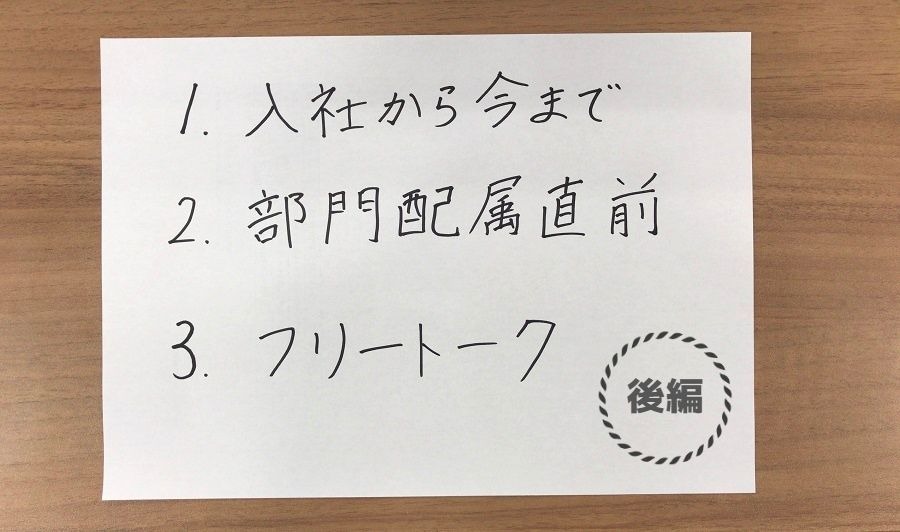 1. 入社から今まで
2. 部門配属直前
3. フリートーク
後編